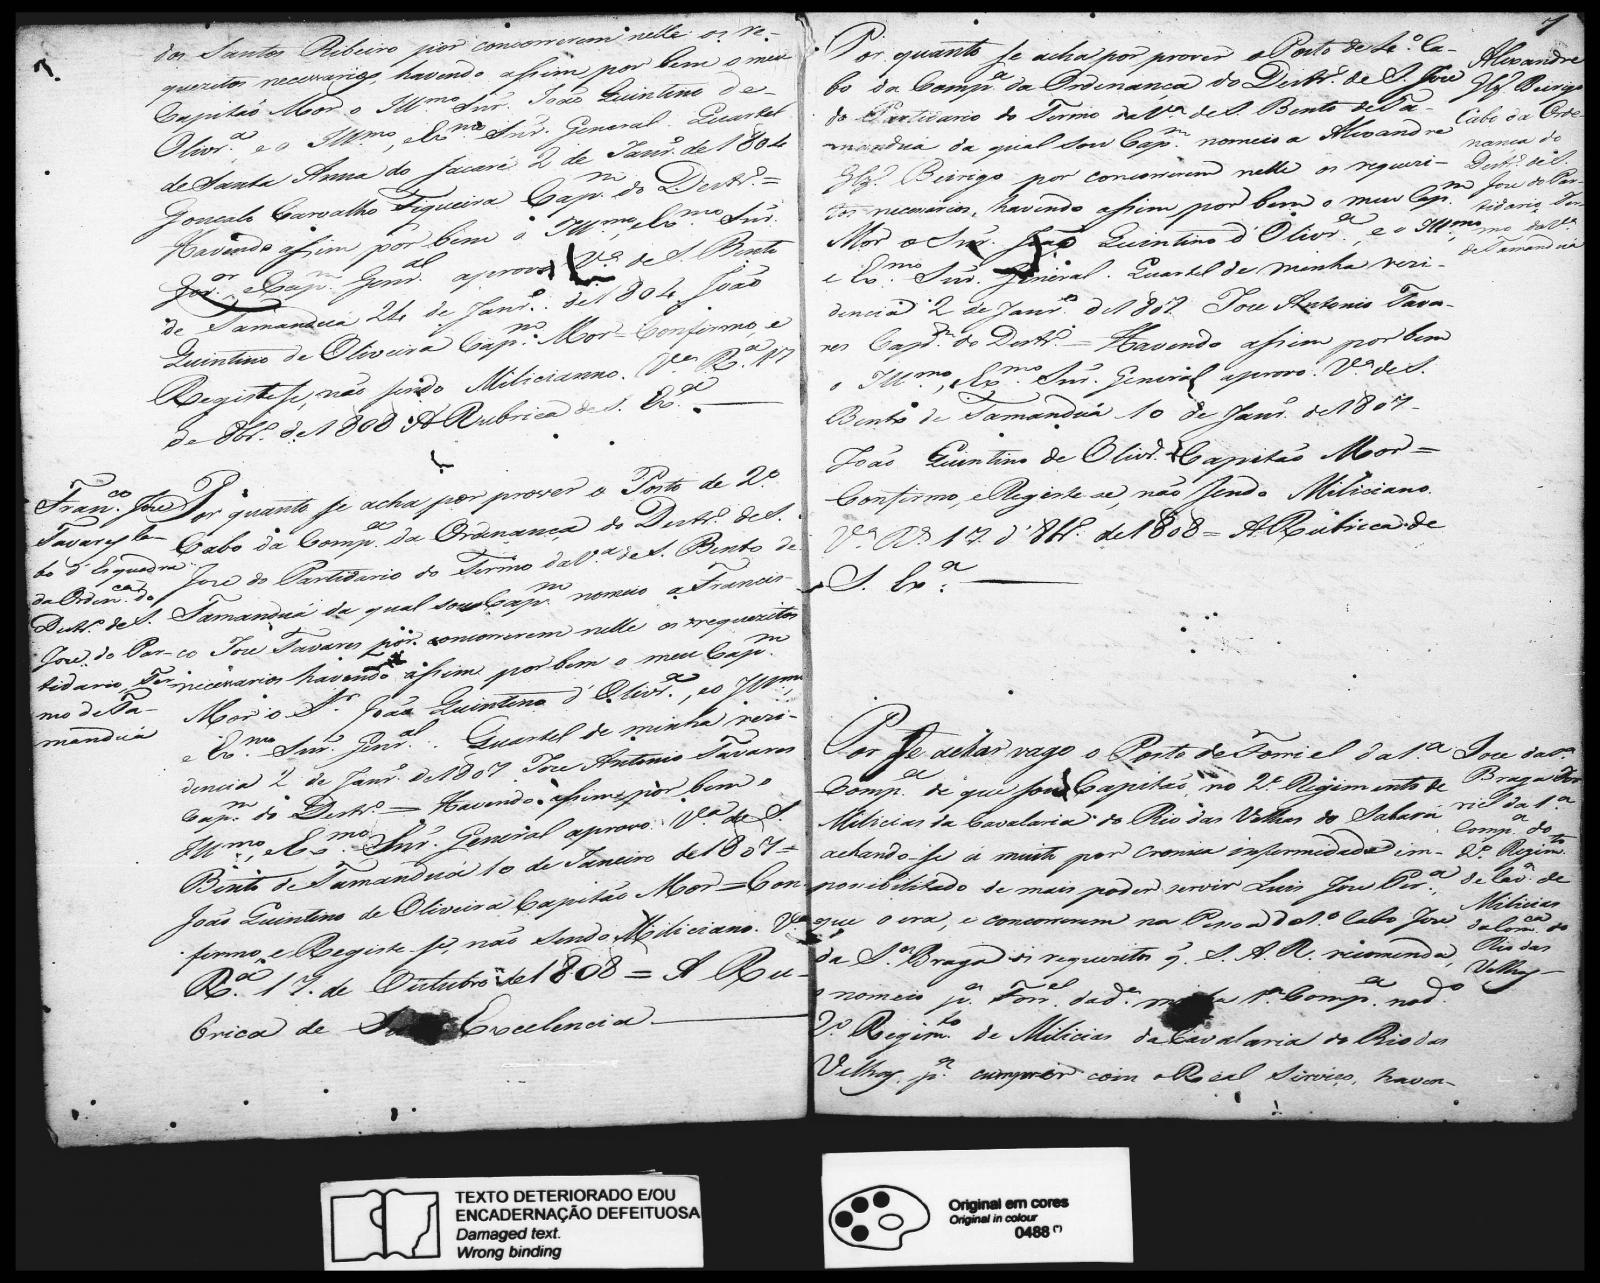 dos Santos Ribeiro por concorrerem nelle os re-
quezitos necessarios, havendo assim por bem o meu
Capitão Mor o Illmo Snr. João Quintino de
Olivr.a, e o Illmo, e Exmo Snr. General. Quartel
de Santa Anna do Jacaré 2 de Janr.o de 1804
Goncalo Carvalho Figueira Cap.m do Destr.o =
Havendo assim por bem o Illmo, e Exmo Snr.
Gor. e Cap.m Genr.al aprovo V.a de S. Bento
de Tamanduá 24 de Janr.o de 1804 João
Quintino de Oliveira Cap.m Mor = Confirmo, e
Registe se, não sendo Milicianno. V.a R.a 17
de 8br.o de 1808 A Rubrica de S. Ex.a
Fran.co Jose
Tavares Ca-
bo d'Esquadra
da Orden.ca do
Destr.o de S.
Jose do Par-
tidario, Ter-
mo de Ta-
manduá
Por quanto se acha por prover o Posto de 2.o
Cabo da Comp.a da Ordenanca do Destr.o de S.
Jose do Partidario do Termo da V.a de S. Bento de
Tamanduá da qual sou Cap.m nomeio a Francis-
co Jose Tavares por concorrerem nelle os requezitos
necessarios havendo assim por bem o meu Cap.m
Mor o Sr. João Quintino d'Olivr.a, e o Illmo,
e Exmo Snr. Genr.al. Quartel de minha rezi-
dencia 2 de Janr.o de 1807 Jose Antonio Tavares
Cap.m do Destr.o = Havendo assim por bem o
Illmo, e Exmo Snr. General aprovo. V.a de S.
Bento de Tamanduá 10 de Janeiro de 1807 =
João Quintino de Oliveira Capitão Mor = Con-
firmo, e Registe se, não sendo Miliciano. V.a
R.a 17. de Outubro de 1808 = A Ru-
brica de Sua Excelencia
7
Por quanto se acha por prover o Posto de Se.o Ca-
bo da Comp.a da Ordenança do Destr.o de S. Jose
do Partidario do Termo da V.a de S. Bento de Ta-
manduá da qual sou Cap.m nomeio a Alexandre
Glz. Beirigo por concorrerem nelle os requezi-
tos necessarios, havendo assim por bem o meu Cap.m
Mor o Snr. João Quintino d'Olivr.a, e o Illmo,
e Exmo Snr. General. Quartel de minha rezi-
dencia 2 de Janr.o de 1807 Jose Antonio Tava-
res Cap.m do Destr.o = Havendo assim por bem
o Illmo, e Exmo Snr. General aprovo. V.a de S.
Bento de Tamanduá 10 de Janr.o de 1807 -
João Quintino de Olivr.a Capitão Mor =
Confirmo, e Registe se, não sendo Miliciano.
V.a R.a 17. d'8br.o de 1808 = A Rubrica de
S. Ex.a
Alexandre
Glz. Beirigo
Cabo da Orde-
nança do
Destr.o de S.
Jose do Par-
tidario, Ter-
mo da V.a
de Tamanduá
Por se achar vago o Posto de Forriel da 1.a
Comp.a de que sou Capitão, no 2.o Regimento de
Milicias da Cavalaria do Rio das Velhas do Sabará
achando-se á muito por cronica infermidade im-
posibilitado de mais poder servir Luis Jose Per.a,
que o era, e concorrerem na Pesoa do 1.o Cabo Jose
da S.a Braga os requezitos q. S. A. R. recomenda,
o nomeio p.a Forr.el da d.a minha 1.a Comp.a no d.o
2.o Regim.to de Milicias da Cavalaria do Rio das
Velhas, p.a cumprir com o Real Serviço, haven-
Jose da S.a
Braga For
riel da 1.a
Comp.a do
2.o Regim.to
de Cav.a de
Milicias
da Com.ca do
Rio das
Velhas
TEXTO DETERIORADO E/OU
ENCADERNAÇÃO DEFEITUOSA
Damaged text.
Wrong binding
Original em cores
Original in colour
0488 (*)